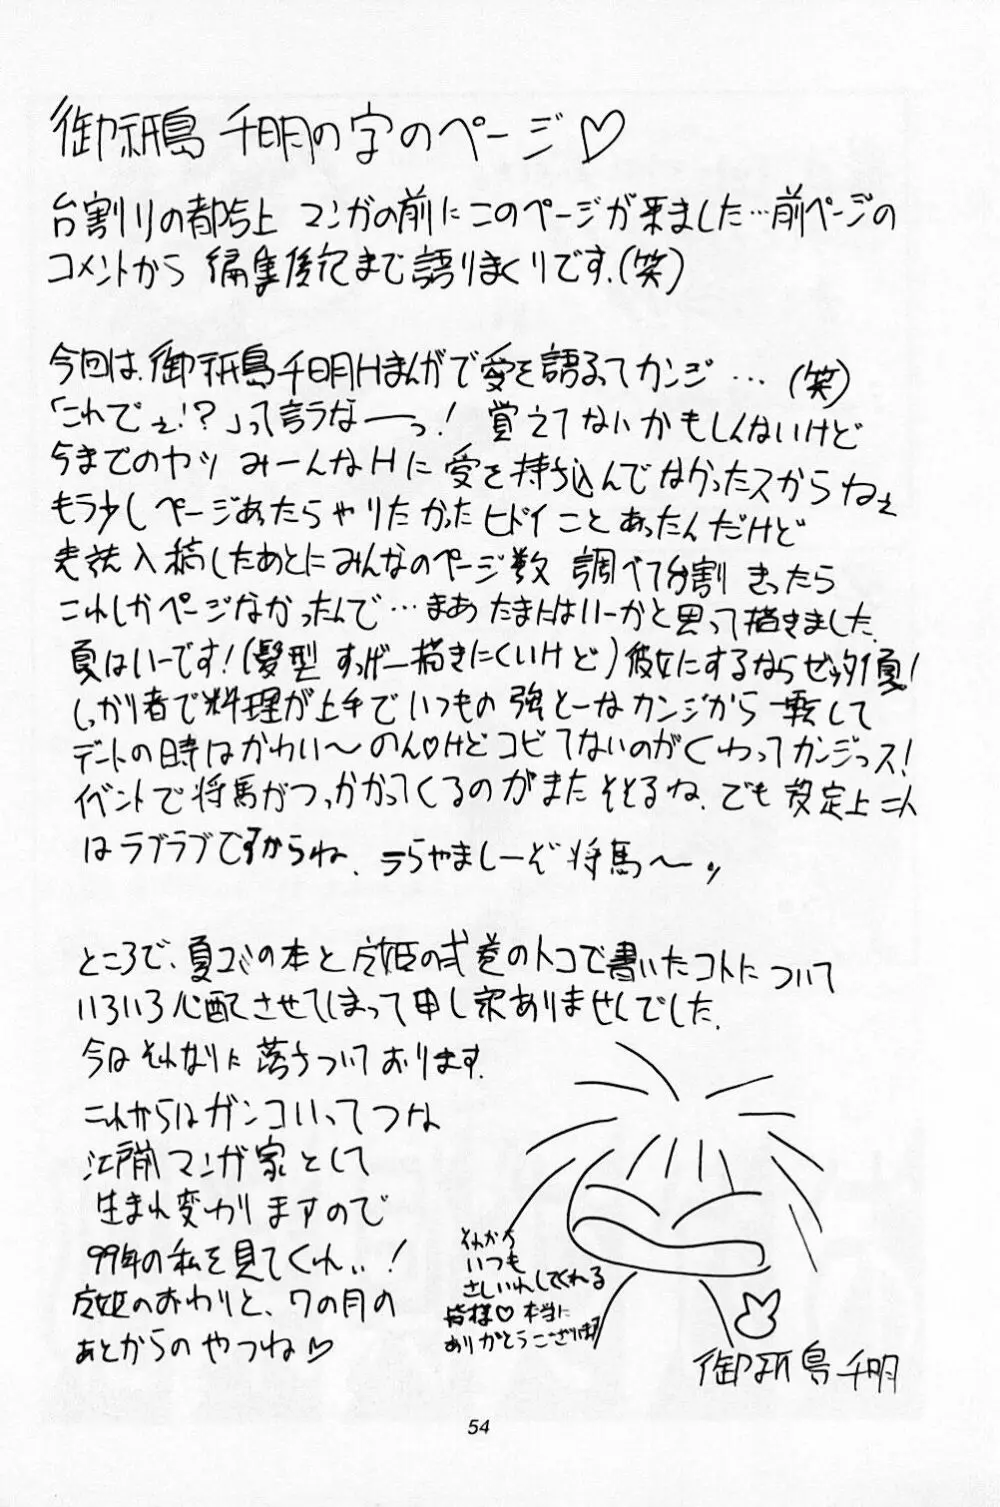 御祇島 千明の字のページ♡
台割りの都合上 マンガの前にこのページが来ました…前ページの
コメントから 編集後記まで語りまくりです.(笑)
今回は、御祇島千明Hまんがで愛を語るってカンジ…(笑)
「これでぇ!?」って言うなーっ! 覚えてないかもしんないけど
今までのヤツ みーんなHに愛を持ち込んでなかったスからねぇ
もう少しページあったらやりたかったヒドイことあったんだけど
表紙入稿したあとにみんなのページ数 調べて台割 きったら
これしかページなかったんで…まあたまにはいーかと思って描きました.
夏はいーです!(髪型 すっげー描きにくいけど)彼女にするならゼッタイ夏!
しっかり者で料理が上手でいつもの 強とーなカンジから一転して
デートの時はかわい〜のん♡けどコビてないのがくわってカンジっス!
イベントで将馬がつっかかってくるのがまたそそるね.でも設定上二人
はラブラブですからね. うらやましーぞ将馬〜ッ
ところで、夏コミの本と の弐巻のトコで書いたコトについて
いろいろ心配させてしまって申し訳ありませんでした.
今はそれなりに 落ちついております.
これからはガンコいってつな
江戸前マンガ家として
生まれ変わりますので
99年の私を見てくれぃ!
のおわりと、7の月の
あとからのやつね♡
それから
いつも
さしいれしてくれる
皆様♡本当に
ありがとうございます
御祇島千明
54